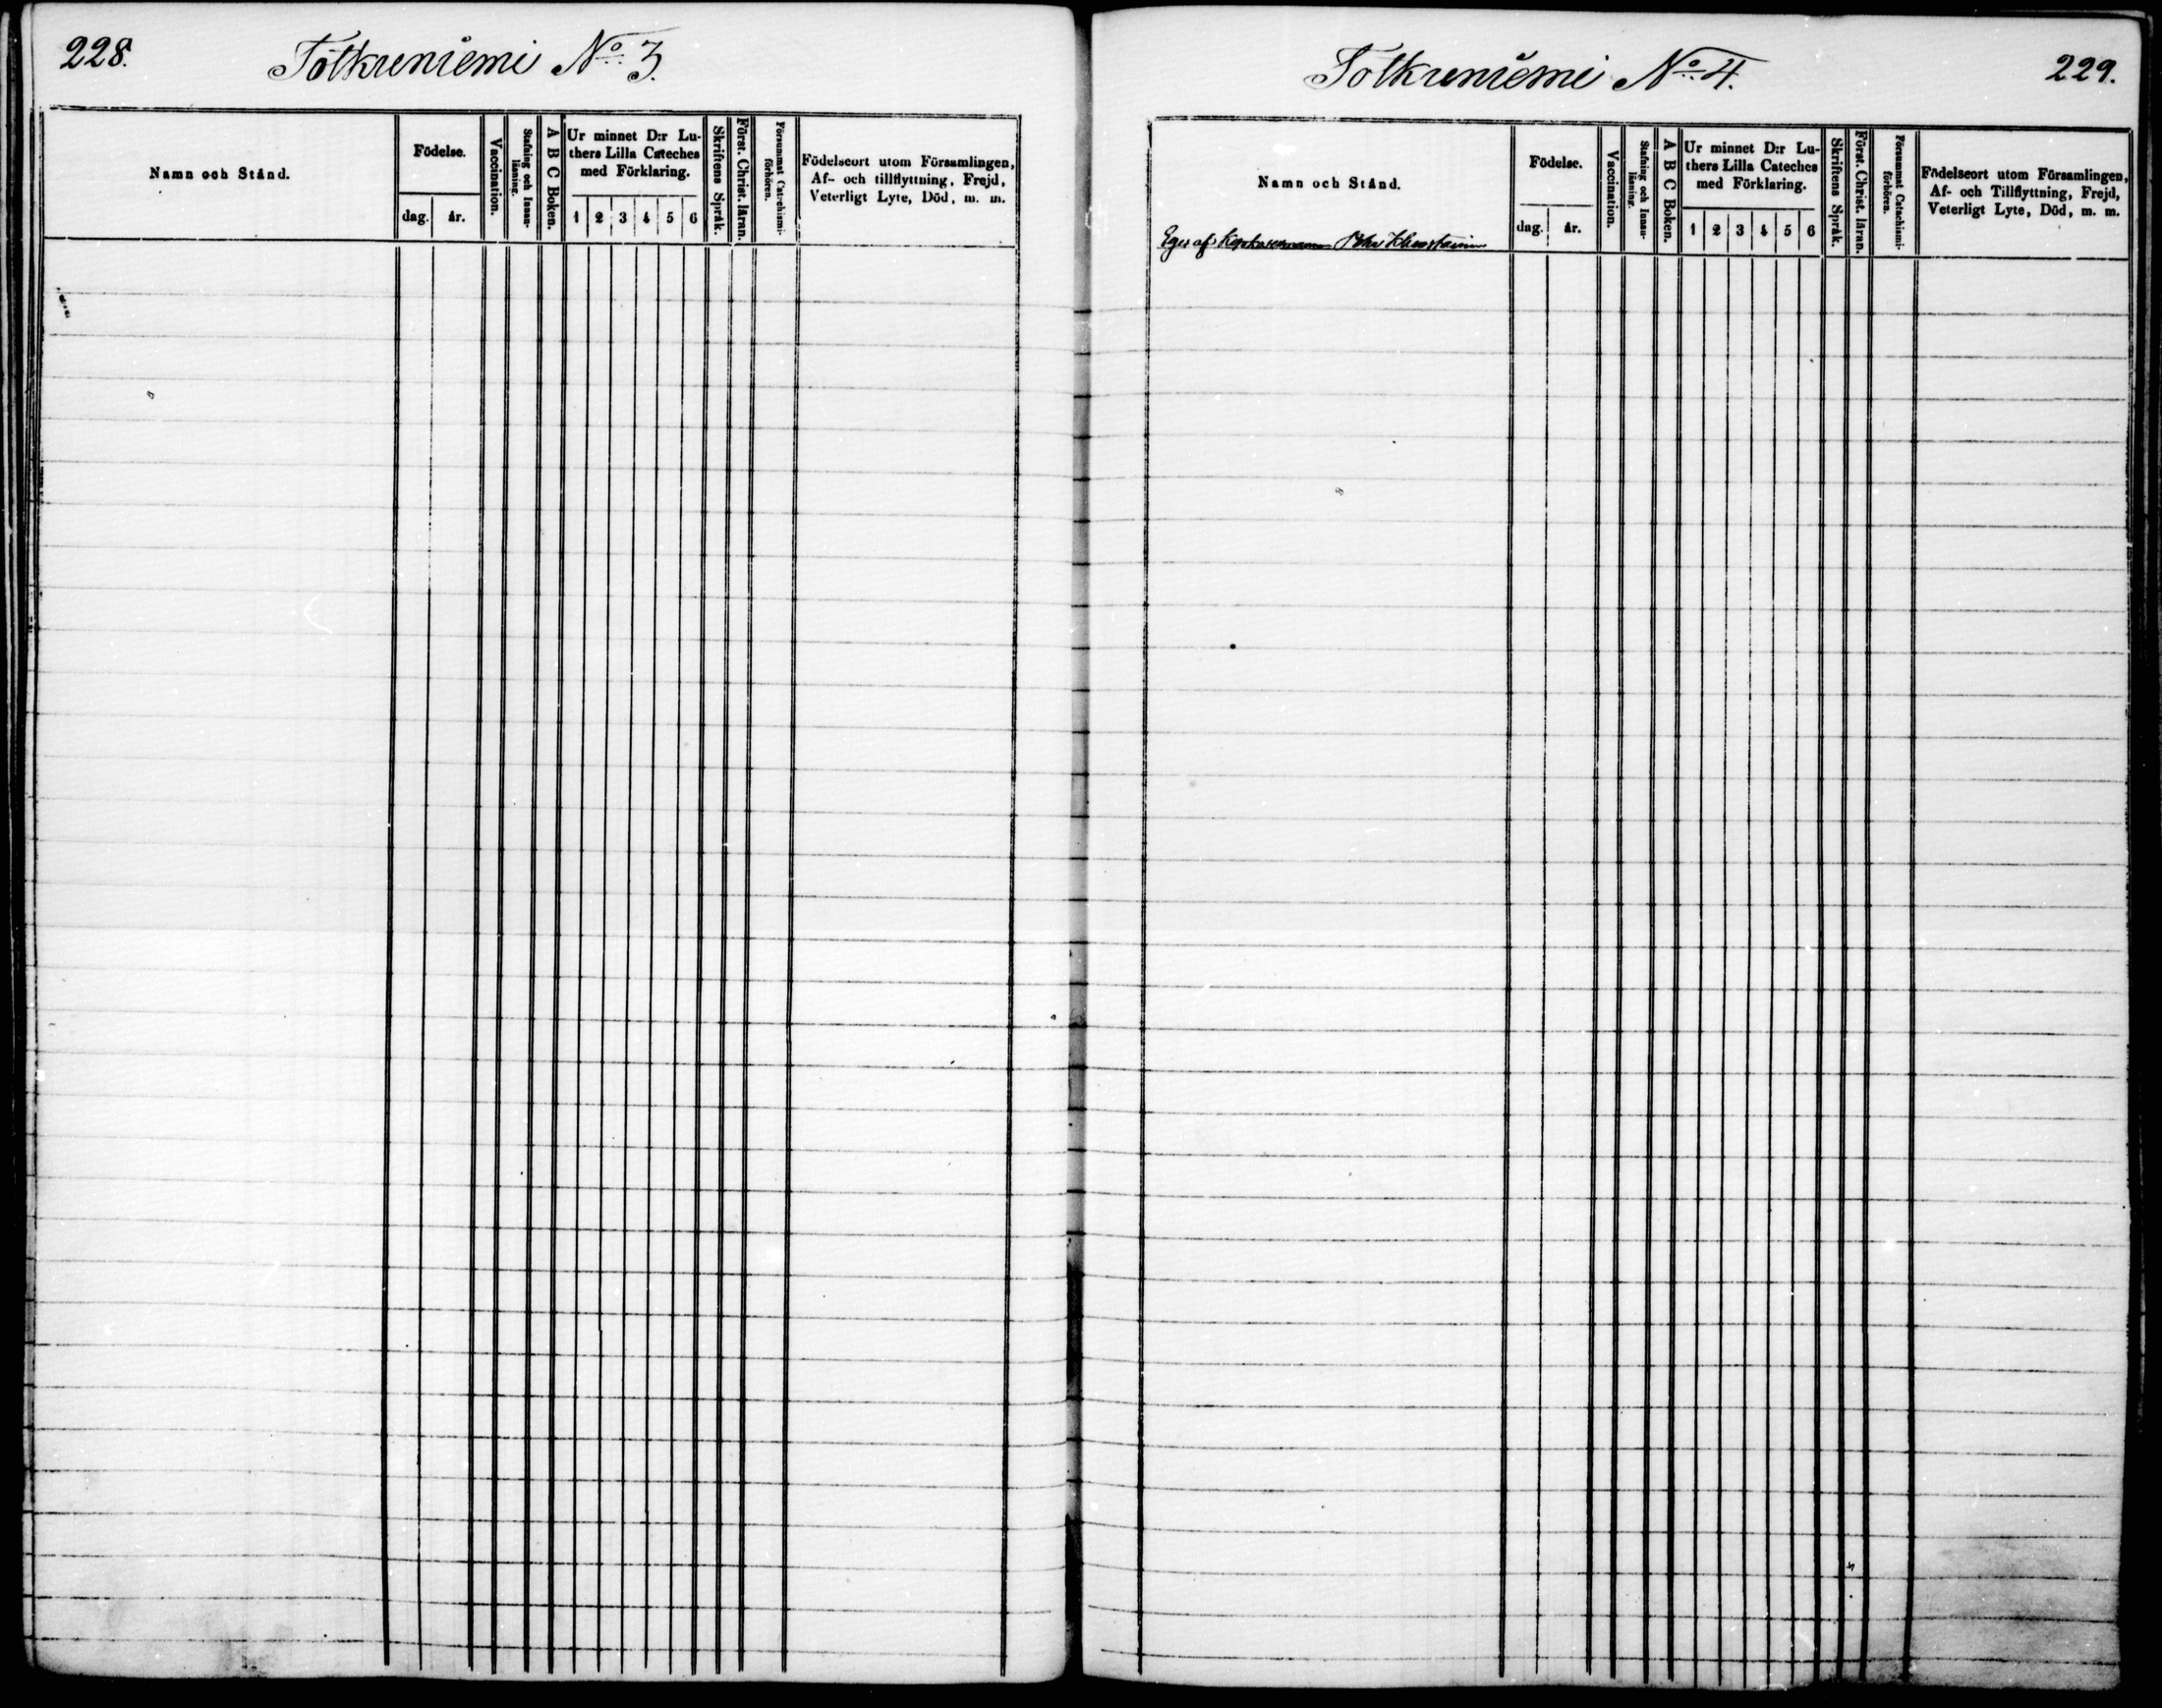 228.
Tötkreniemi No 3.
Namn och Stånd.
Födelse.
dag.
år.
Vaccination.
Stafning och Innan-
läsning.
A B C Boken.
Ur minnet D:r Lu-
thers Lilla Cateches
med Förklaring.
1 2 3 4 5 6
Skriftens Språk.
Först. Christ. läran.
Försummat Catechismi-
förhören.
Födelseort utom Församlingen,
Af- och tillflyttning, Frejd,
Veterligt Lyte, Död, m. m.
Tötkreniemi No 4.
229.
Namn och Stånd.
Eges af
Födelse.
dag.
år.
Vaccination.
Stafning och Innan-
läsning.
A B C Boken.
Ur minnet D:r Lu-
thers Lilla Cateches
med Förklaring.
1 2 3 4 5 6
Skriftens Språk.
Först. Christ. läran.
Försummat Catechismi-
förhören.
Födelseort utom Församlingen,
Af- och Tillflyttning, Frejd,
Veterligt Lyte, Död, m. m.